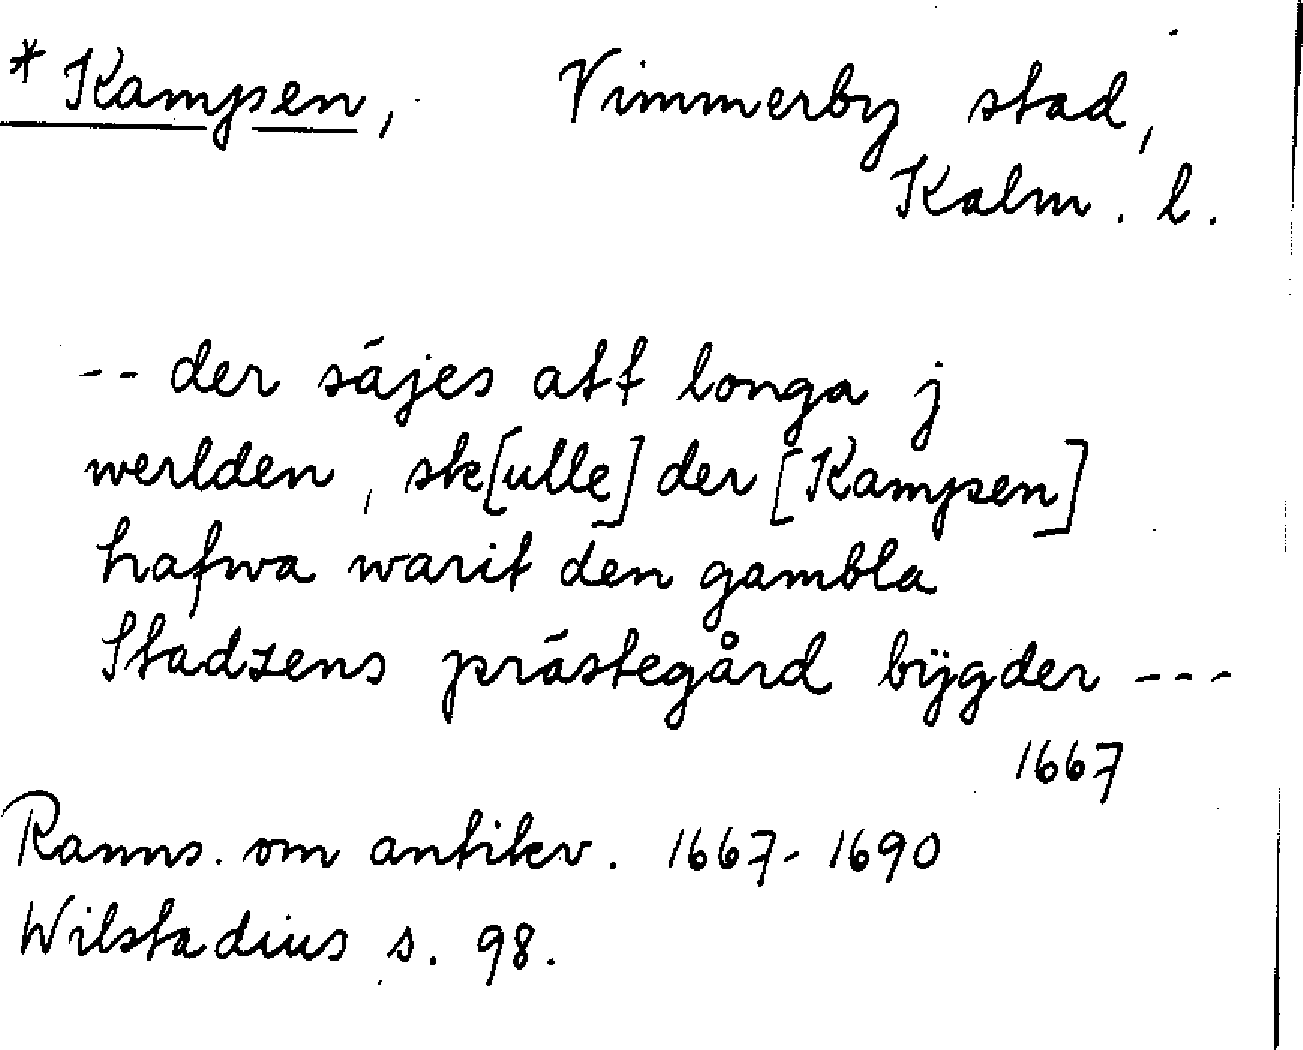 * Kampen, Vimmerby stad,
Kalm. l.
-- der säjes att longa j
werlden, sk[ulle] der [Kampen]
hafwa warit den gambla
Stadzens prästegård bÿgder ---
1667
Ranns. om antikv. 1667-1690
Wilstadius s. 98.